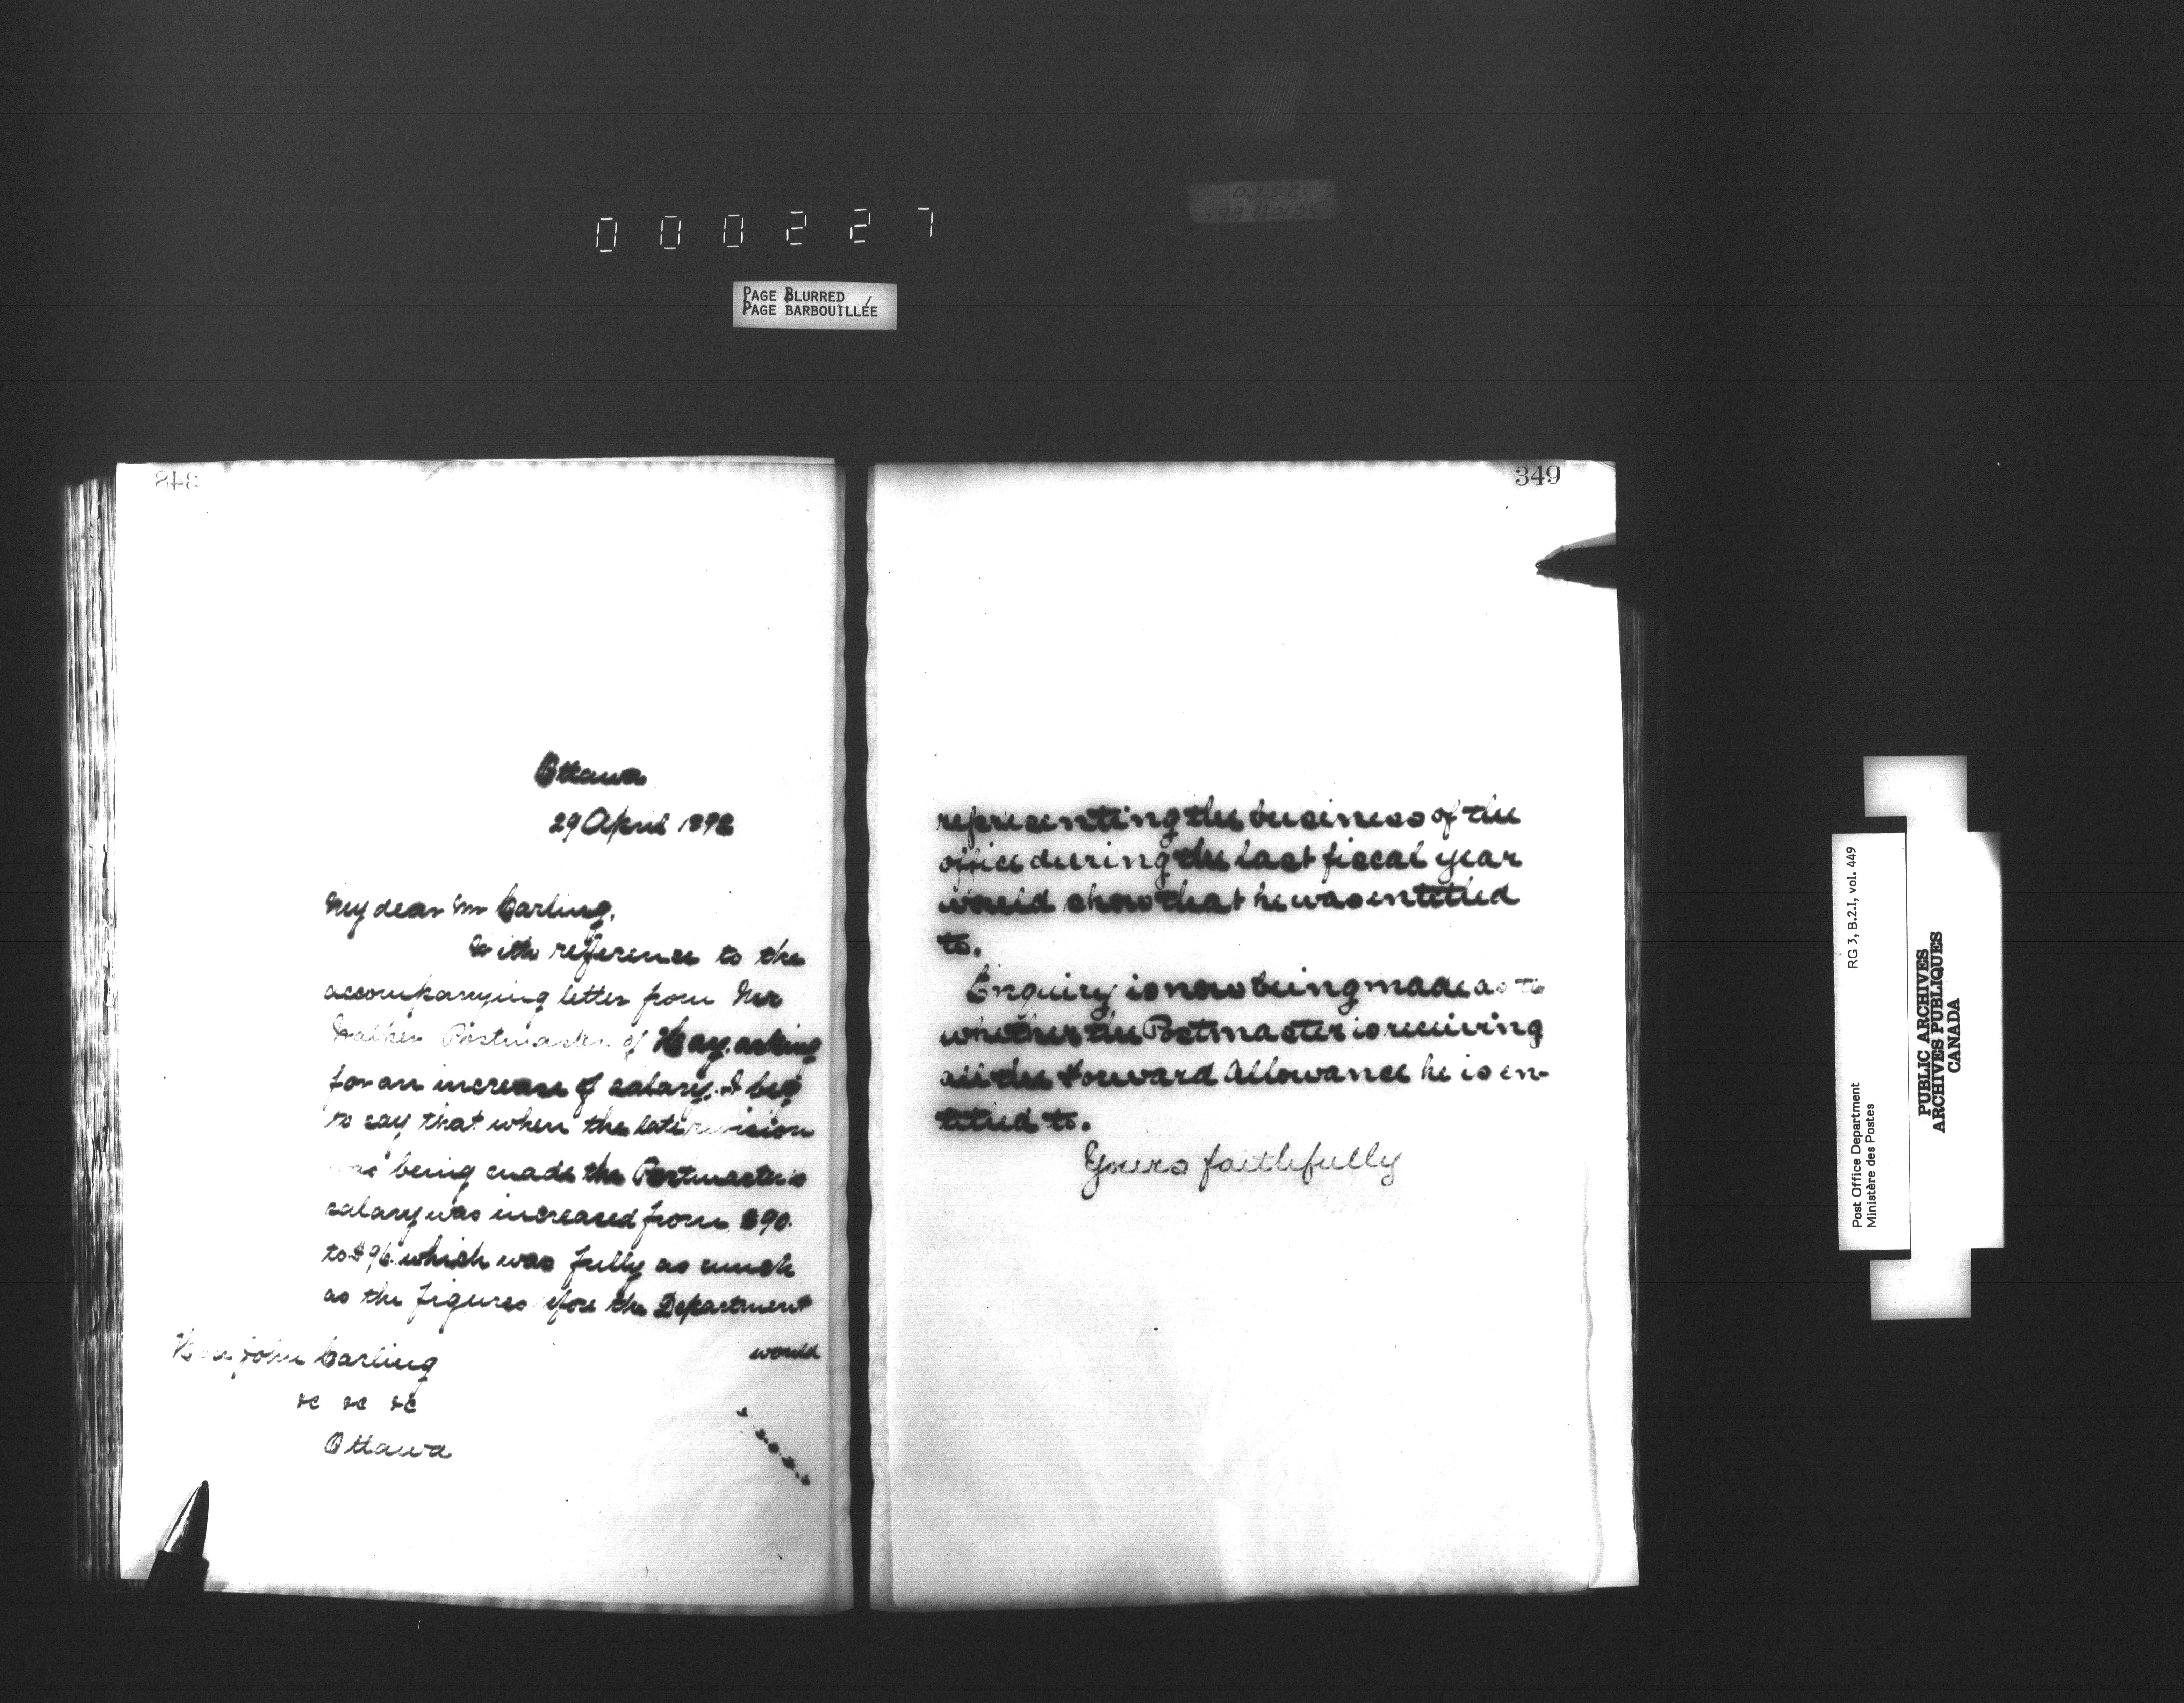 000227
PAGE BLURRED
PAGE BARBOUILLÉE
348
Ottawa
29 April 1892
My dear Mr Carling,
With reference to the
accompanying letter from Mr
Walker Postmaster of Hay, asking
for an increase of salary, I beg
to say that when the late revision
was being made the Postmaster's
salary was increased from $90.
to $96. which was fully as much
as the figures before the Department
would
Hon. John Carling
&c &c &c
Ottawa
349
representing the business of the
office during the last fiscal year
would show that he was entitled
to.
Enquiry is now being made as to
whether the Postmaster is receiving
all the Forward Allowance he is en-
titled to.
Yours faithfully
Post Office Department
Ministère des Postes
RG 3, B.2.I, vol. 449
PUBLIC ARCHIVES
ARCHIVES PUBLIQUES
CANADA